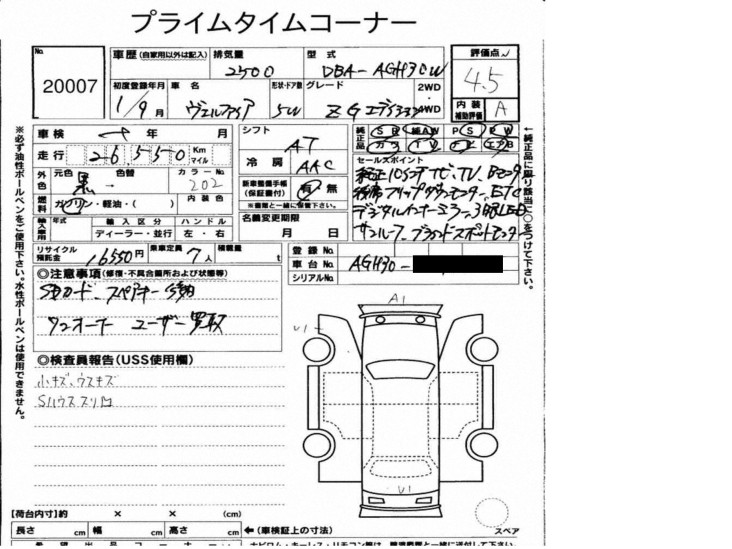 プライムタイムコーナー
No.
20007
車歴(自家用以外は記入)
排気量
2500
型式
DBA-AGH30W
評価点
4.5
内装補助評価
A
初度登録年月
1/9月
車名
ヴェルファイア
形状・ドア数
5W
グレード
ZGエディション
2WD
4WD
車検 年 月
走行 26,550 Km マイル
シフト
AT
冷房
AAC
純正品
SR 純AW PS PW
カワ TV ナビ エアB
セールスポイント
純正10インチナビ、TV、Bモニター
後席フリップダウンモニター、ETC
デジタルインナーミラー、3眼LED
サンルーフ、ブラインドスポットモニター
外色
元色 黒
色替
カラーNo.
202
燃料
ガソリン・軽油・( )
内装色
新車整備手帳(保証書付) 有・無
※書類と一緒に保管下さい。
輸入車用
年式
輸入区分
ディーラー・並行
ハンドル
左・右
名義変更期限
月 日
リサイクル預託金
16550円
乗車定員
7人
積載量
t
登録No.
車台No.
AGH30-
シリアルNo.
◎注意事項(修復・不具合箇所および状態等)
SDカード、スペアキー 移動
ワンオーナー ユーザー買取
◎検査員報告(USS使用欄)
小キズ、ウスキズ
Sハウススリ凹
A1
U1
U1
スペア
【荷台内寸】約 × × (cm)
長さ cm 幅 cm 高さ cm ←(車検証上の寸法)
※必ず油性ボールペンをご使用下さい。水性ボールペンは使用できません。
←純正品に限り該当に○をつけて下さい。